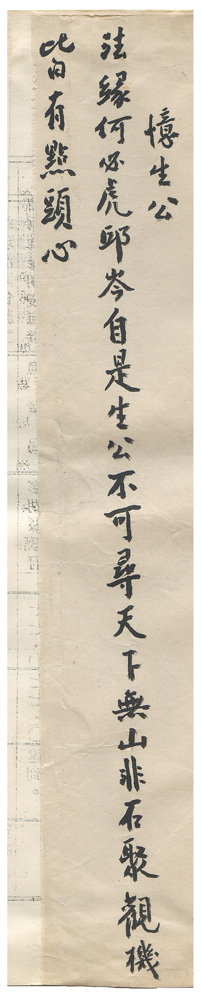 憶生公
法緣何必虎邱岑自是生公不可尋天下無山非石聚觀機
比白有點頭心